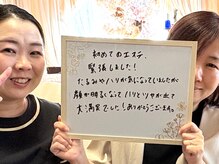 初めてのエステ、
緊張しました!
たるみやハリが気になっていましたが、
顔が明るくなってハリとツヤが出て
大満足でした!ありがとうございます。